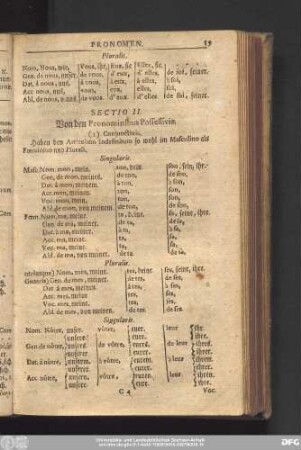 PRONOMEN. 59
Pluralis.
Nom. Nous, wir, Vous, ihr, Eux, sie Elles, sie.
Gen. de nous, unser, de vous, d'eux, d'elles, de soi, seiner.
Dat. à nous, uns, à vous, à eux, à elles, à soi,
Acc. nous, uns, vous, eux, elles,
Abl. de nous, v. uns de vous, d'eux, d'elles, de soi, seiner.
SECTIO II.
Von den Pronominibus Possessivis.
(1) Conjunctivis.
Haben den Articulum Indefinitum so wohl im Masculino als
Foeminino und Plurali.
Singularis
Masc. Nom. mon, mein, ton, dein son, sein, ihr.
Gen. de mon, meines, de ton, de son,
Dat. à mon, meinem, à ton, à son,
Acc. mon, meinen, ton, son,
Voc. mon, mein, ton, son,
Abl. de mon, von meinem, de ton, de son,
Foem. Nom. ma, meine, ta, deine, sa, seine, ihre.
Gen. de ma, meiner, de ta, de sa,
Dat. à ma, meiner, à ta, à sa,
Acc. ma, meine, ta, sa,
Voc. ma, meine, ta, sa,
Abl. de ma, von meiner, de ta de sa
Pluralis.
utriusque) Nom. mes, meine, tes, deine ses, seine, ihre.
Generis) Gen. de mes, meiner, de tes, de ses,
Dat. à mes, meinen, à tes, à ses,
Acc. mes, meine, tes, ses,
Voc. mes, meine, tes, ses,
Abl. de mes, von meinen, de tes, de ses,
Singularis
Nom. Nôtre, unser, vôtre, euer. leur ihr.
unsere eure. ihre.
Gen. de nôtre, unsers de vôtre, eures. de leur ihres.
unserer eurer. ihrer.
Dat. à nôtre, unserm à vôtre, eurem. à leur ihrem.
unserer eurer. ihrer.
Acc. nôtre, unsern vôtre, euren. leur ihren.
unsere eure. ihre.
C 4 Voc.
Universitäts- und Landesbibliothek Sachsen-Anhalt
DFG